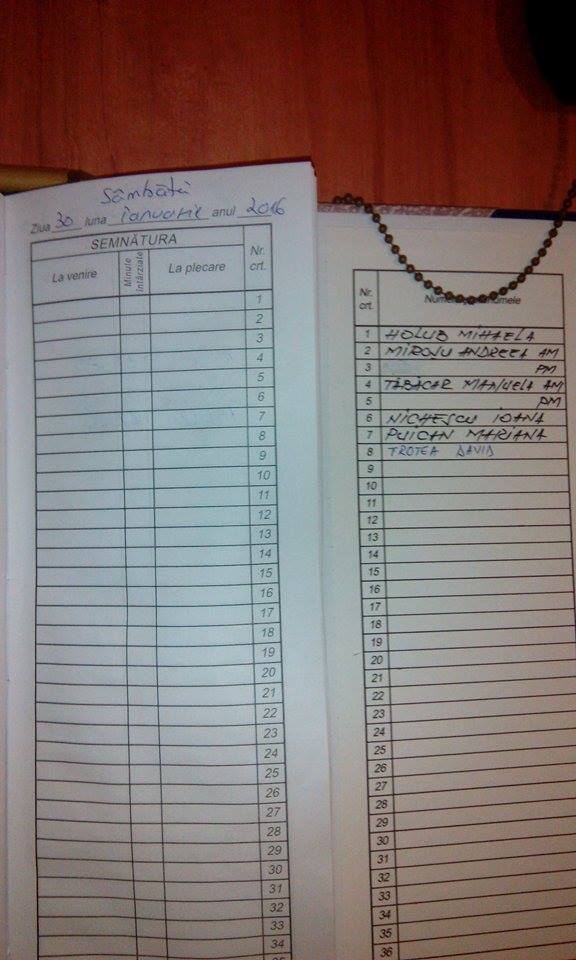 Sâmbătă
Ziua 30 luna ianuarie anul 2016
SEMNĂTURA
La venire
Minute întârziate
La plecare
Nr. crt.
1
2
3
4
5
6
7
8
9
10
11
12
13
14
15
16
17
18
19
20
21
22
23
24
25
26
27
28
29
30
31
32
33
34
Nr. crt.
1 HOLUB MIHAELA
2 MIROIU ANDREEA AM
3 PM
4 TABACAR MANUELA AM
5 PM
6 NICHESCU IOANA
7 PUICAN MARIANA
8 TROTEA DAVID
9
10
11
12
13
14
15
16
17
18
19
20
21
22
23
24
25
26
27
28
29
30
31
32
33
34
35
36